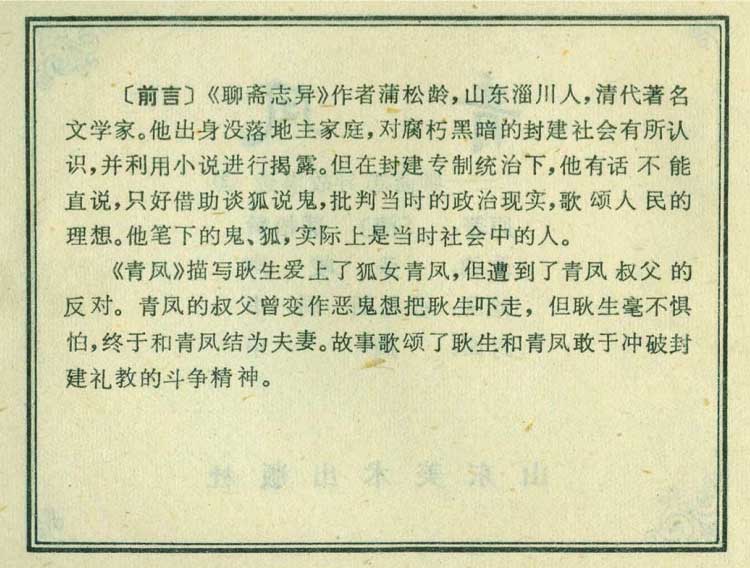 〔前言〕《聊斋志异》作者蒲松龄，山东淄川人，清代著名
文学家。他出身没落地主家庭，对腐朽黑暗的封建社会有所认
识，并利用小说进行揭露。但在封建专制统治下，他有话不能
直说，只好借助谈狐说鬼，批判当时的政治现实，歌颂人民的
理想。他笔下的鬼、狐，实际上是当时社会中的人。
《青凤》描写耿生爱上了狐女青凤，但遭到了青凤叔父的
反对。青凤的叔父曾变作恶鬼想把耿生吓走，但耿生毫不惧
怕，终于和青凤结为夫妻。故事歌颂了耿生和青凤敢于冲破封
建礼教的斗争精神。
山东美术出版社